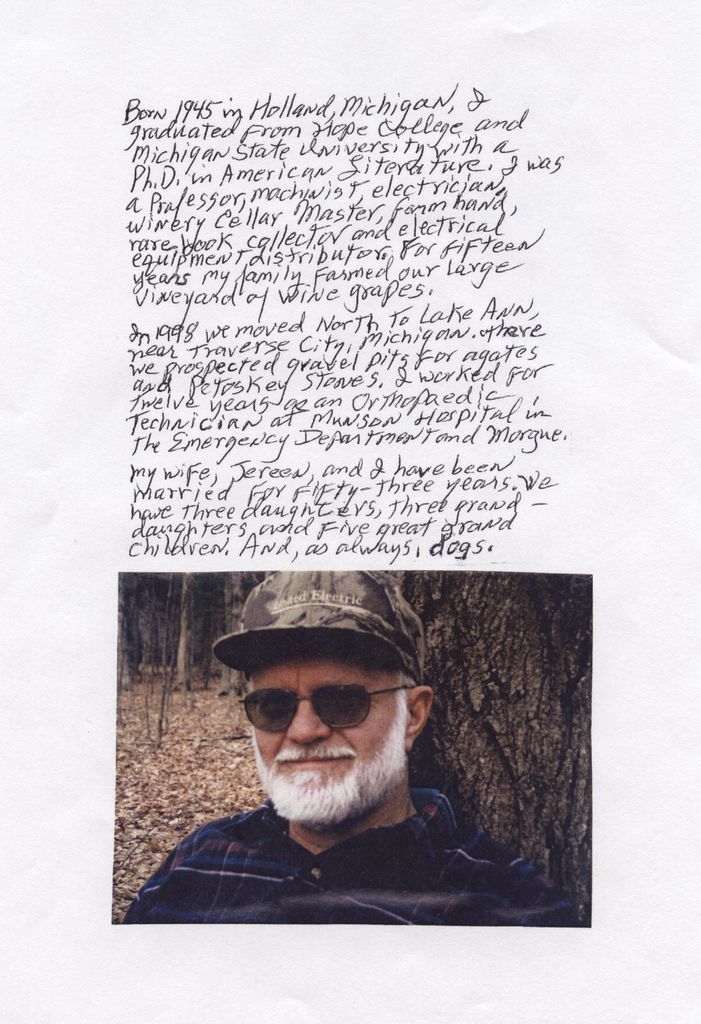 Born 1945 in Holland, Michigan, I
graduated from Hope College and
Michigan State University with a
Ph.D. in American Literature. I was
a Professor, machinist, electrician,
winery Cellar Master, farm hand,
rare book collector and electrical
equipment distributor. For fifteen
years my family farmed our large
vineyard of wine grapes.
In 1998 we moved North to Lake Ann,
near Traverse City, Michigan. There
we prospected gravel pits for agates
and Petoskey Stones. I worked for
twelve years as an Orthopaedic
Technician at Munson Hospital in
the Emergency Department and Morgue.
My wife, Jereen, and I have been
married for fifty-three years. We
have three daughters, three grand-
daughters, and five great grand
children. And, as always, dogs.
United Electric